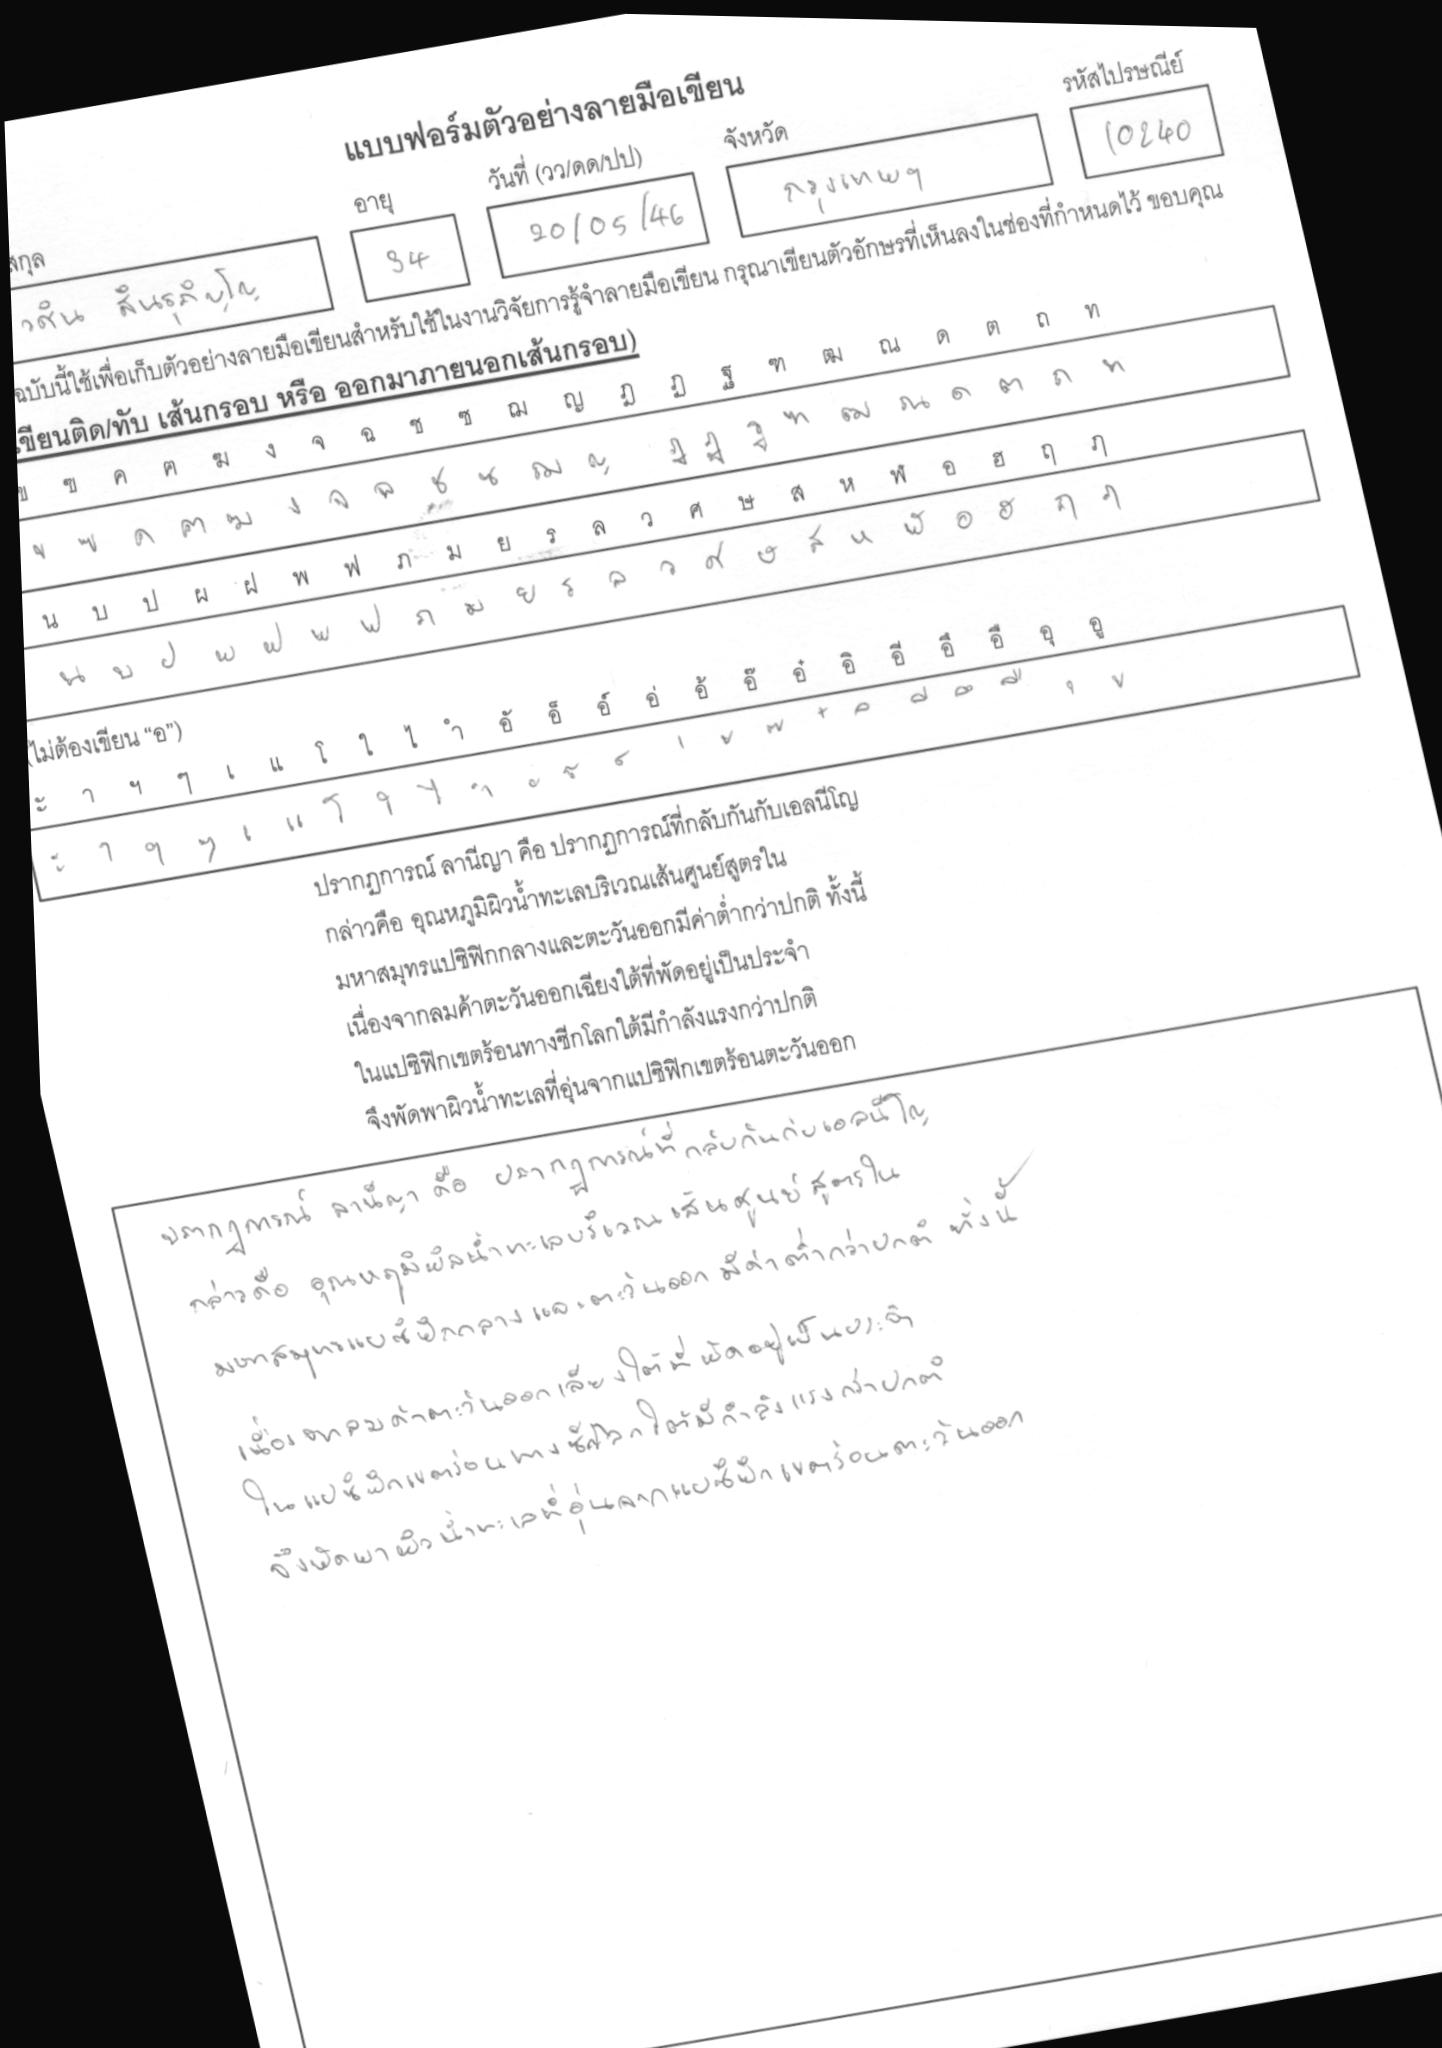 แบบฟอร์มตัวอย่างลายมือเขียน
สกุล อายุ วันที่ (วว/ดด/ปป) จังหวัด รหัสไปรษณีย์
34 20/05/46 กรุงเทพฯ 10240
ฉบับนี้ใช้เพื่อเก็บตัวอย่างลายมือเขียนสำหรับใช้ในงานวิจัยการรู้จำลายมือเขียน กรุณาเขียนตัวอักษรที่เห็นลงในช่องที่กำหนดไว้ ขอบคุณ
เขียนติด/ทับ เส้นกรอบ หรือ ออกมาภายนอกเส้นกรอบ)
ข ฃ ค ฅ ฆ ง จ ฉ ช ซ ฌ ญ ฎ ฏ ฐ ฑ ฒ ณ ด ต ถ ท
ข ฃ ค ฅ ฆ ง จ ฉ ช ซ ฌ ญ ฎ ฏ ฐ ฑ ฒ ณ ด ต ถ ท
น บ ป ผ ฝ พ ฟ ภ ม ย ร ล ว ศ ษ ส ห ฬ อ ฮ ฤ ฦ
น บ ป ผ ฝ พ ฟ ภ ม ย ร ล ว ศ ษ ส ห ฬ อ ฮ ฤ ฦ
(ไม่ต้องเขียน “อ”)
ะ า ฯ ๆ เ แ โ ใ ไ ำ อั อ็ อ์ อ่ อ้ อ๊ อ๋ อิ อี อึ อื อุ อู
ะ า ฯ ๆ เ แ โ ใ ไ ำ ั ็ ์ ่ ้ ๊ ๋ ิ ี ึ ื ุ ู
ปรากฏการณ์ ลานีญา คือ ปรากฏการณ์ที่กลับกันกับเอลนีโญ
กล่าวคือ อุณหภูมิผิวน้ำทะเลบริเวณเส้นศูนย์สูตรใน
มหาสมุทรแปซิฟิกกลางและตะวันออกมีค่าต่ำกว่าปกติ ทั้งนี้
เนื่องจากลมค้าตะวันออกเฉียงใต้ที่พัดอยู่เป็นประจำ
ในแปซิฟิกเขตร้อนทางซีกโลกใต้มีกำลังแรงกว่าปกติ
จึงพัดพาผิวน้ำทะเลที่อุ่นจากแปซิฟิกเขตร้อนตะวันออก
ปรากฏการณ์ ลานีญา คือ ปรากฏการณ์ที่กลับกันกับเอลนีโญ
กล่าวคือ อุณหภูมิผิวน้ำทะเลบริเวณเส้นศูนย์สูตรใน
มหาสมุทรแปซิฟิกกลางและตะวันออก มีค่าต่ำกว่าปกติ ทั้งนี้
เนื่องจากลมค้าตะวันออกเฉียงใต้ที่พัดอยู่เป็นประจำ
ในแปซิฟิกเขตร้อนทางซีกโลกใต้มีกำลังแรงกว่าปกติ
จึงพัดพาผิวน้ำทะเลที่อุ่นจากแปซิฟิกเขตร้อนตะวันออก